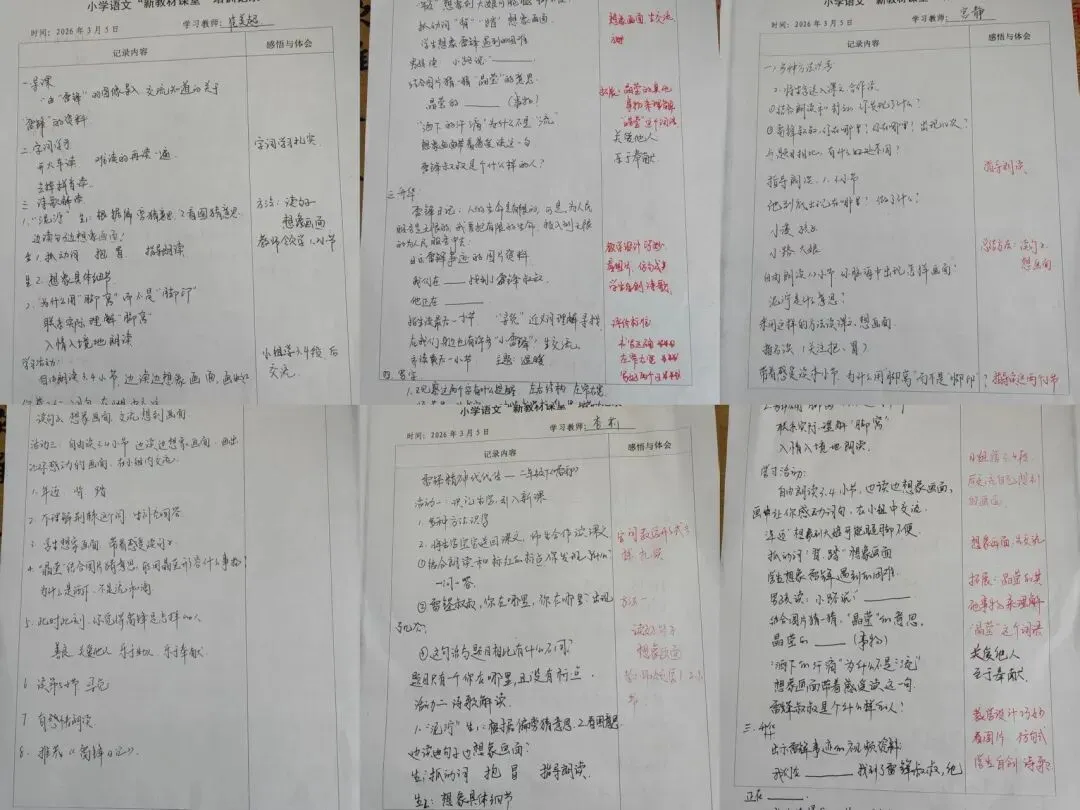 小学语文“新教材课堂”培训记录
时间：2026年3月5日 学习教师：
记录内容 感悟与体会
一、导课
由“雷锋”的图像导入 交流知道的关于
“雷锋”的资料
二、字词学习 字词学习扎实
开火车读 难读的再读一遍
三、诗歌解读
1.“泥泞” 生1：根据偏旁猜意思 2.看图猜意思 方法：读句子
边读句边想象画面？ 想象画面
生1.抓动词 抱 冒 指导朗读 教师领学1、2小节
生2.想象具体细节
2.为什么用“脚窝”而不是“脚印”
联系实际理解“脚窝”
入情入境地朗读
学习活动： 小组学3.4段后
自由朗读3.4小节,边读边想象画面, 交流
抓动词“背”“踏”想象画面 想象画面 生交流
学生想象雷锋遇到的困难
结合图片猜一猜“晶莹”的意思
晶莹的______(事物) 拓展：晶莹的其他
事物来理解
“晶莹”这个词语
“洒下的汗滴”为什么不是“流”
想象画面带着感觉读这一句 关爱他人
雷锋叔叔是个什么样的人？ 乐于奉献
三、升华
雷锋日记：人的生命是有限的，可是，为人民
服务是无限的，我要把有限的生命，投入到无限
的为人民服务中去
出示雷锋事迹的图片资料 教学设计巧妙
我们在____找到了雷锋叔叔 看图片，仿句式
他正在____ 学生自创诗歌
指生读最后一小节 “寻觅”近义词理解寻找
在我们身边也有许多“小雷锋”生交流
齐读最后一小节 主题：温暖
四、写字
小学语文“新教材课堂”
时间：2026年3月5日 学习教师：宫静
记录内容 感悟与体会
一、多种方法识字
2.将生字送入课文 合作读
①结合朗读和标点，你发现了什么？
②雷锋叔叔,你在哪里？你在哪里？出现几次？
与题目相比，有什么不同？
指导朗读，1.2小节 指导朗读
他到底出现在哪里？做了什么？
小溪 孩子
小路 大娘 总结方法：读句子
自由朗读1.2小节 小脑海中出现怎样画面？ 想画面
泥泞是什么意思？
采用这样的方法读课文,想画面
指名读(关注抱、冒)
带着感觉读本小节.为什么用“脚窝”而不是“脚印”？ 指导读这两个小节
读句子 想象画面 交流想到画面
活动三：自由读3.4小节 边读边想象画面，画出
让你感动的画面，在小组内交流
1.年迈 背 踏
2.不理解荆棘这个词 生补充回答
3.学生想象画面 带着感觉读句子
4.“晶莹”结合图片猜意思,能用晶莹形容什么事物？
为什么是洒下，不是流下汗滴
5.此时此刻,你觉得雷锋是怎样的人
善良 关爱他人 乐于助人 乐于奉献
6 读第5小节 寻觅
7 有感情朗读
8.推荐《雷锋日记》
小学语文“新教材课堂
时间：2026年3月5日 学习教师：
记录内容 感悟与体会
雷锋精神代代传——二年级下《雷锋》
活动一：识记生字,引入新课
1.多种方法识字
2.将生字宝宝送回课文，师生合作读课文
①结合朗读和标红的标点你发现了什么
一问一答
②雷锋叔叔,你在哪里,你在哪里？出现
了几次？
③这句话与题目相比有什么不同？ 读句子
题目只有一个你在哪里,且没有标点. 想象画面
活动二 诗歌解读
1.“泥泞” 生1：根据偏旁猜意思 2.看图意思
边读边句子边想象画面？
生1抓动词 抱 冒 指导朗读.
生2：想象具体细节
联系实际理解“脚窝”
入情入境地朗读.
学习活动： 小组学3.4段
自由朗读3.4小节,边读边想象画面,
画出让你感动词句，在小组中交流.
“年迈”想象到大娘可能腿脚不便.
抓动词“背 踏”想象画面 想象画面 生交流
学生想象雷锋遇到的困难.
男孩读：小路说：“______ 拓展：晶莹的其
结合图片猜一猜,“晶莹”的意思. 他事物来理解
晶莹的____(事物) “晶莹”这个词语
“洒下的汗滴”为什么不是“流” 关爱他人
想象画面带着感觉读这一句. 乐于奉献
雷锋叔叔是个什么样的人？
三、升华 教学设计巧妙
出示雷锋事迹的视频资料 看图片 仿句式
我们在______找到了雷锋叔叔,他 学生自创诗歌
正在____.